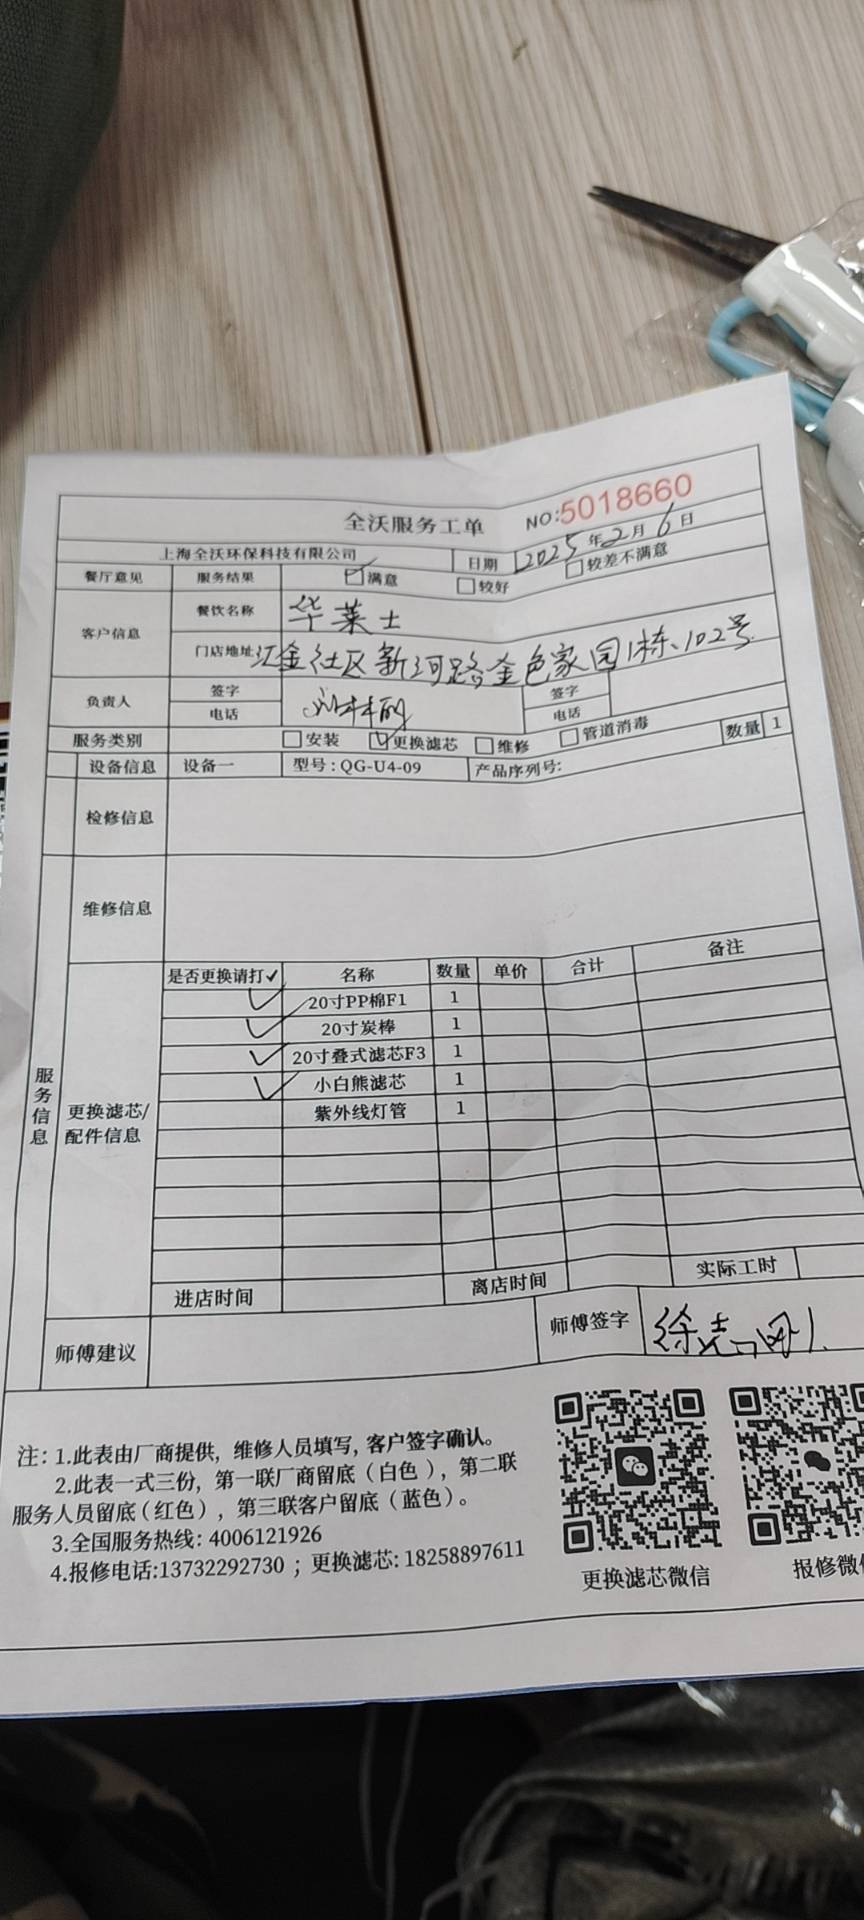 全沃服务工单 NO:5018660
上海全沃环保科技有限公司 日期 2025年2月6日
餐厅意见 服务结果 ☑满意 □较好 □较差不满意
客户信息 餐饮名称 华莱士
门店地址 汇金社区新河路金色家园1栋、102号
负责人 签字 签字
电话 电话
服务类别 □安装 ☑更换滤芯 □维修 □管道消毒 数量 1
设备信息 设备一 型号:QG-U4-09 产品序列号:
检修信息
维修信息
服务信息
更换滤芯/配件信息
是否更换请打✓ 名称 数量 单价 合计 备注
✓ 20寸PP棉F1 1
✓ 20寸炭棒 1
✓ 20寸叠式滤芯F3 1
✓ 小白熊滤芯 1
紫外线灯管 1
进店时间 离店时间 实际工时
师傅建议 师傅签字
注: 1.此表由厂商提供, 维修人员填写, 客户签字确认。
2.此表一式三份, 第一联厂商留底(白色), 第二联
服务人员留底(红色), 第三联客户留底(蓝色)。
3.全国服务热线: 4006121926
4.报修电话:13732292730 ; 更换滤芯: 18258897611
更换滤芯微信 报修微信